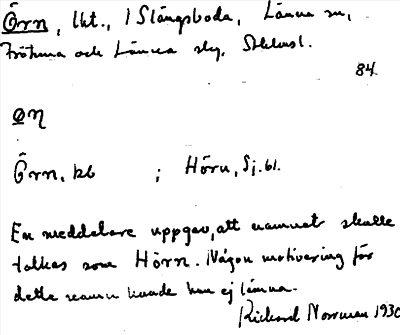 Örn, lkt., i Slängsboda, Länna sn,
Frötuna och Länna slg, Sthlmsl.
84.
øn
Örn, kb ; Hörn, Sj. 61.
En meddelare uppgav, att namnet skulle
tolkas som Hörn. Någon motivering för
detta namn kunde han ej lämna.
Rickard Norrman 1930